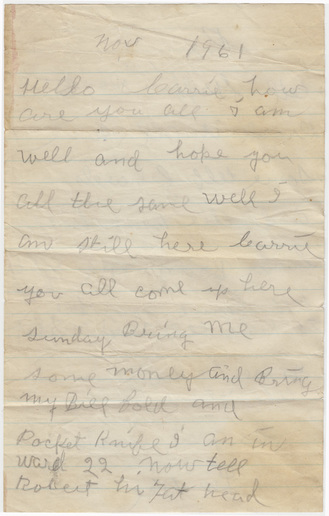 Nov 1961
Hello Carrie how
are you all I am
well and hope you
all the same well I
am still here Carrie
you all come up here
sunday Bring Me
some money and Bring
my Bill fold and
Pocket Knife I am in
Ward 22 Now tell
Robert head